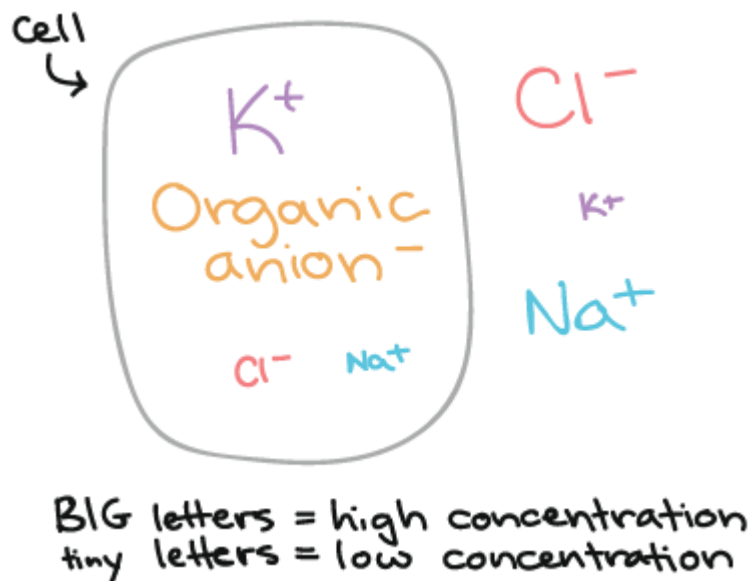 cell
K+
Organic
anion-
Cl- Na+
Cl-
K+
Na+
BIG letters = high concentration
tiny letters = low concentration